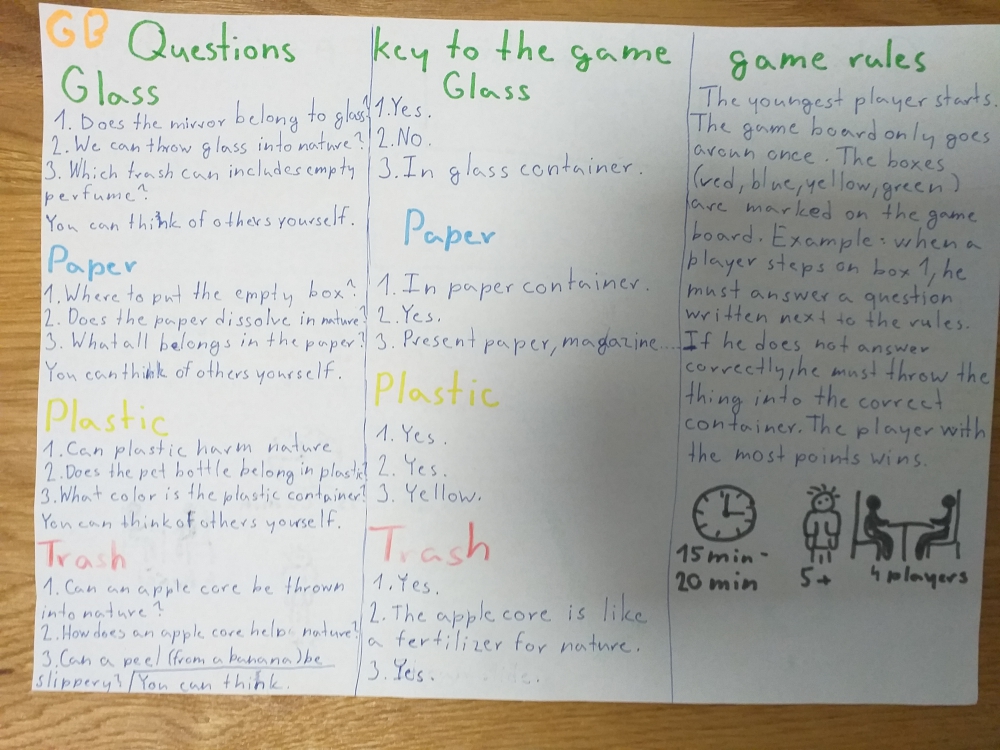 GB Questions
Glass
1. Does the mirror belong to glass?
2. We can throw glass into nature?
3. Which trash can includes empty
perfume?
You can think of others yourself.
Paper
1. Where to put the empty box?
2. Does the paper dissolve in nature?
3. What all belongs in the paper?
You can think of others yourself.
Plastic
1. Can plastic harm nature
2. Does the pet bottle belong in plastic?
3. What color is the plastic container?
You can think of others yourself.
Trash
1. Can an apple core be thrown
into nature?
2. How does an apple core help nature?
3. Can a peel (from a banana) be
slippery? / You can think.
key to the game
Glass
1. Yes.
2. No.
3. In glass container.
Paper
1. In paper container.
2. Yes.
3. Present paper, magazine...
Plastic
1. Yes.
2. Yes.
3. Yellow.
Trash
1. Yes.
2. The apple core is like
a fertilizer for nature.
3. Yes.
game rules
The youngest player starts.
The game board only goes
aroun once. The boxes
(red, blue, yellow, green)
are marked on the game
board. Example: when a
player steps on box 1, he
must answer a question
written next to the rules.
If he does not answer
correctly, he must throw the
thing into the correct
container. The player with
the most points wins.
15 min -
20 min
5+
4 players